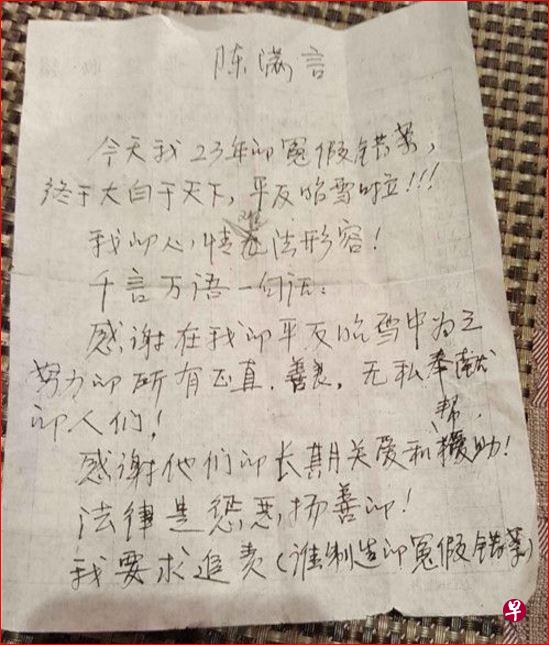 陈满言
今天我23年的冤假错案,
终于大白于天下,平反昭雪啦!!!
我的心情难法形容!
千言万语一句话:
感谢在我的平反昭雪中为之
努力的所有正直.善良,无私奉献
的人们!
感谢他们的长期关爱和帮助!
法律是惩恶扬善的!
我要求追责(谁制造的冤假错案)
早